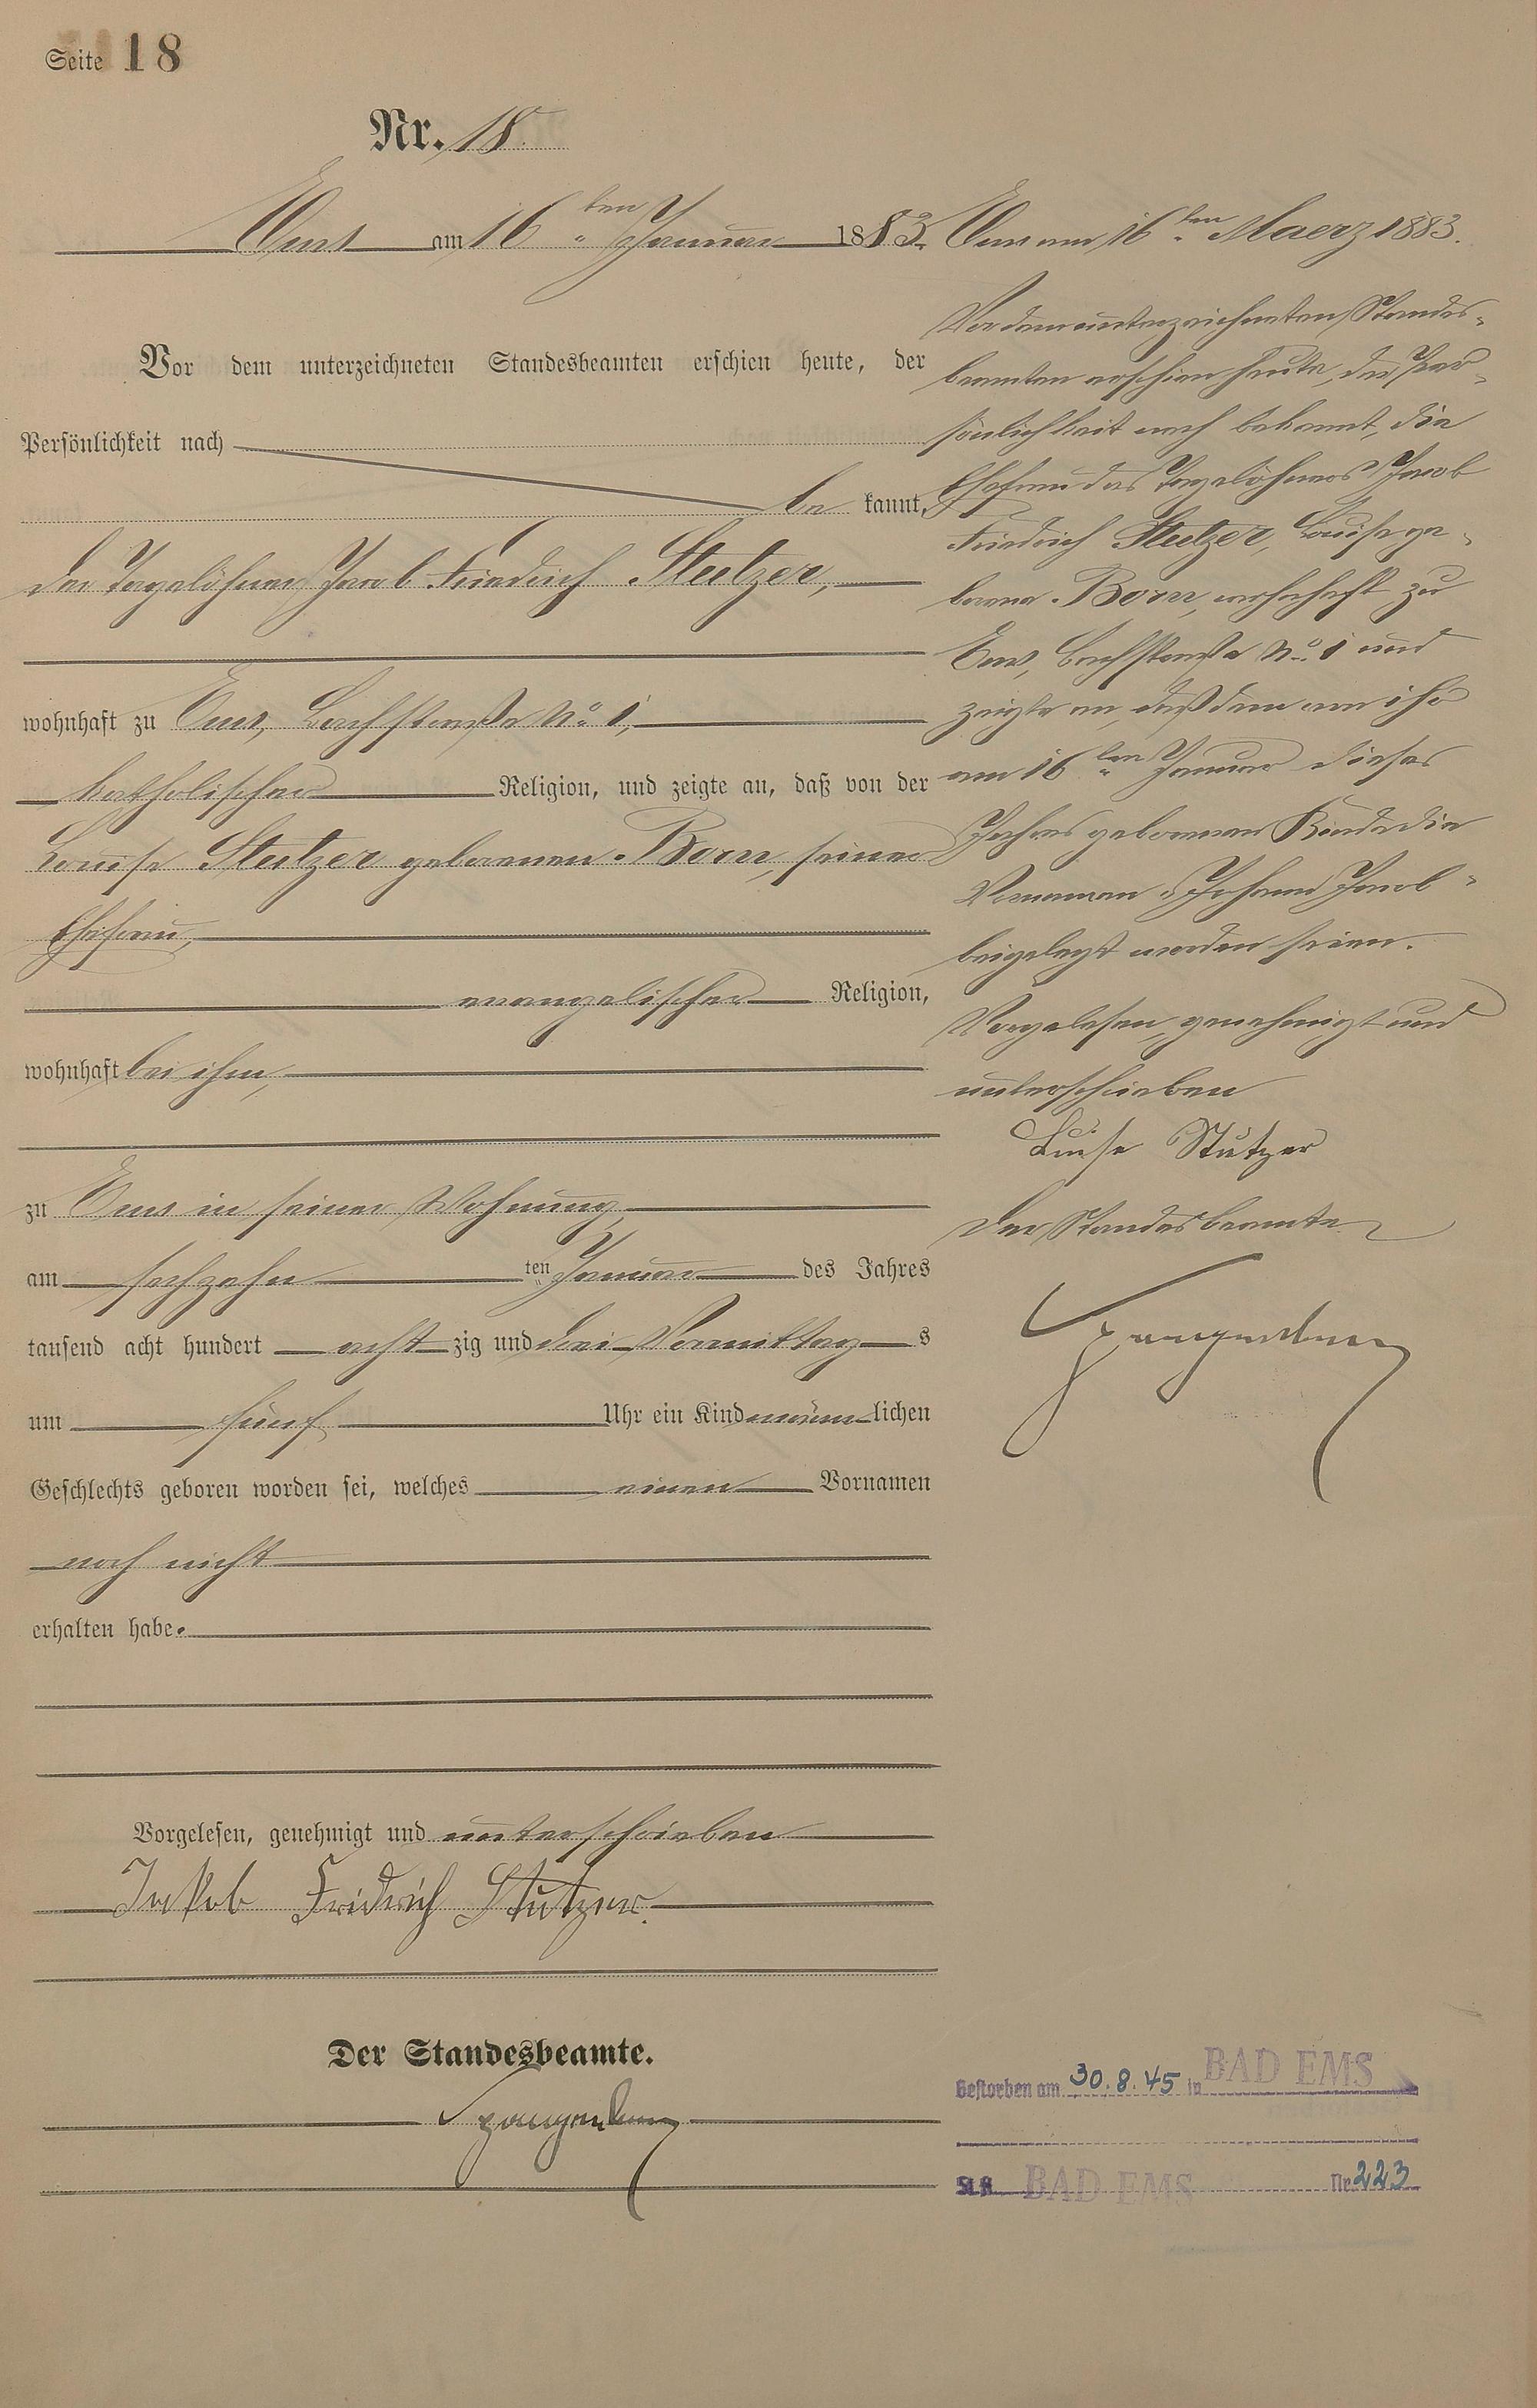 Seite 18
Nr. 18.
Ems am 16ten Januar 1883.
Vor dem unterzeichneten Standesbeamten erschien heute, der
Persönlichkeit nach
be kannt,
der Tagelöhner Jacob Friedrich Stutzer,
wohnhaft zu Ems, Bachstraße No 1,
katholischer Religion, und zeigte an, daß von der
Louise Stutzer geborenen Born, seiner
Ehefrau,
evangelischer Religion,
wohnhaft bei ihm,
zu Ems in seiner Wohnung,
am sechzehn ten Januar des Jahres
tausend acht hundert acht zig und drei Vormittag s
um fünf Uhr ein Kind männ lichen
Geschlechts geboren worden sei, welches einen Vornamen
noch nicht
erhalten habe.
Vorgelesen, genehmigt und unterschrieben
Jakob Fridrich Stutzer.
Der Standesbeamte.
Spangenberg
Ems am 16ten Maerz 1883.
Vor dem unterzeichneten Standes-
beamten erschien heute, der Per-
sönlichkeit nach bekannt, die
Ehefrau des Tagelöhners Jacob
Friedrich Stutzer, Louise ge-
borene Born, wohnhaft zu
Ems, Bachstraße No 1 und
zeigte an, daß dem von ihr
am 16ten Januar dieses
Jahres geborenen Kinde die
Vornamen "Johann Jacob"
beigelegt worden seien.
Vorgelesen, genehmigt und
unterschrieben
Luise Stutzer
Der Standesbeamte
Spangenberg
Gestorben am 30.8.45 in BAD EMS
St.A. BAD EMS Nr. 223